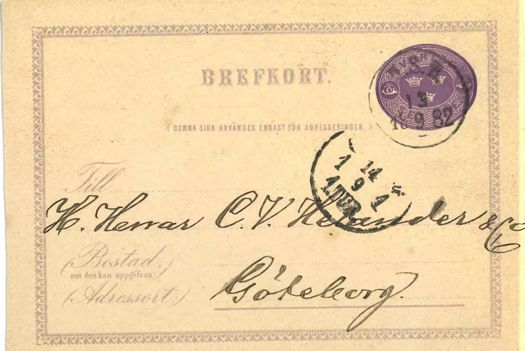 BREFKORT.
13
9 82
( DENNA SIDA ANVÄNDES ENDAST FÖR ADRESSERINGEN. )
14
1 9 1
1 TUR
Till
H. Herrar C. V. Helander & Co
(Bostad.)
om den kan uppgifvas
(Adressort.)
Göteborg.